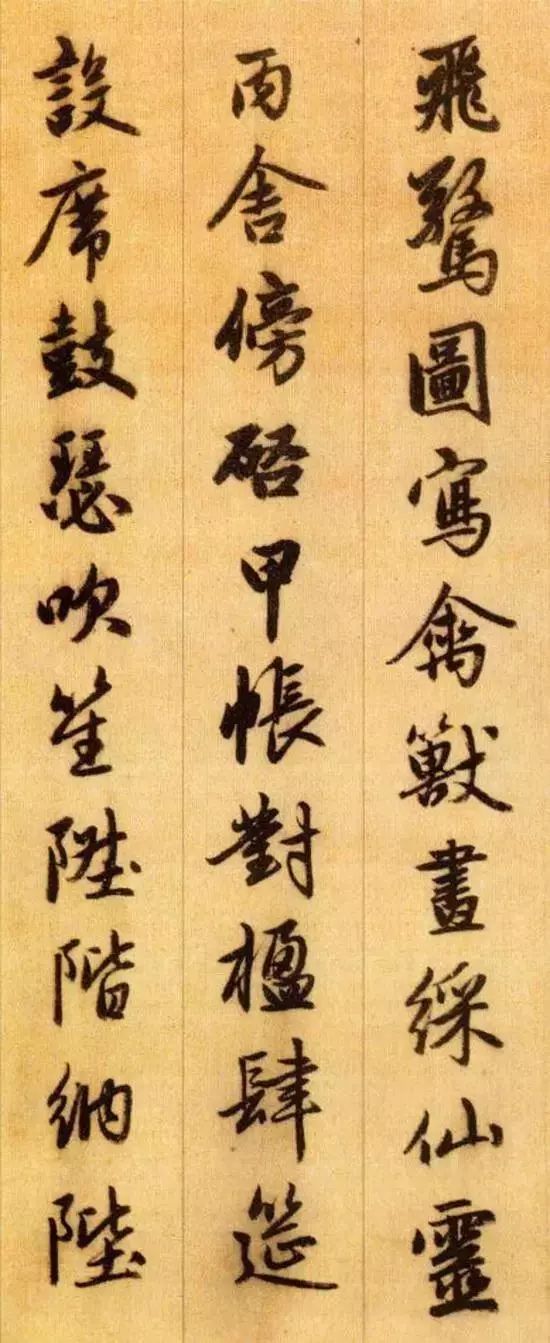 飛驚圖寫禽獸畫綵仙靈
丙舍傍啓甲帳對楹肆筵
設席鼓瑟吹笙陞階納陛